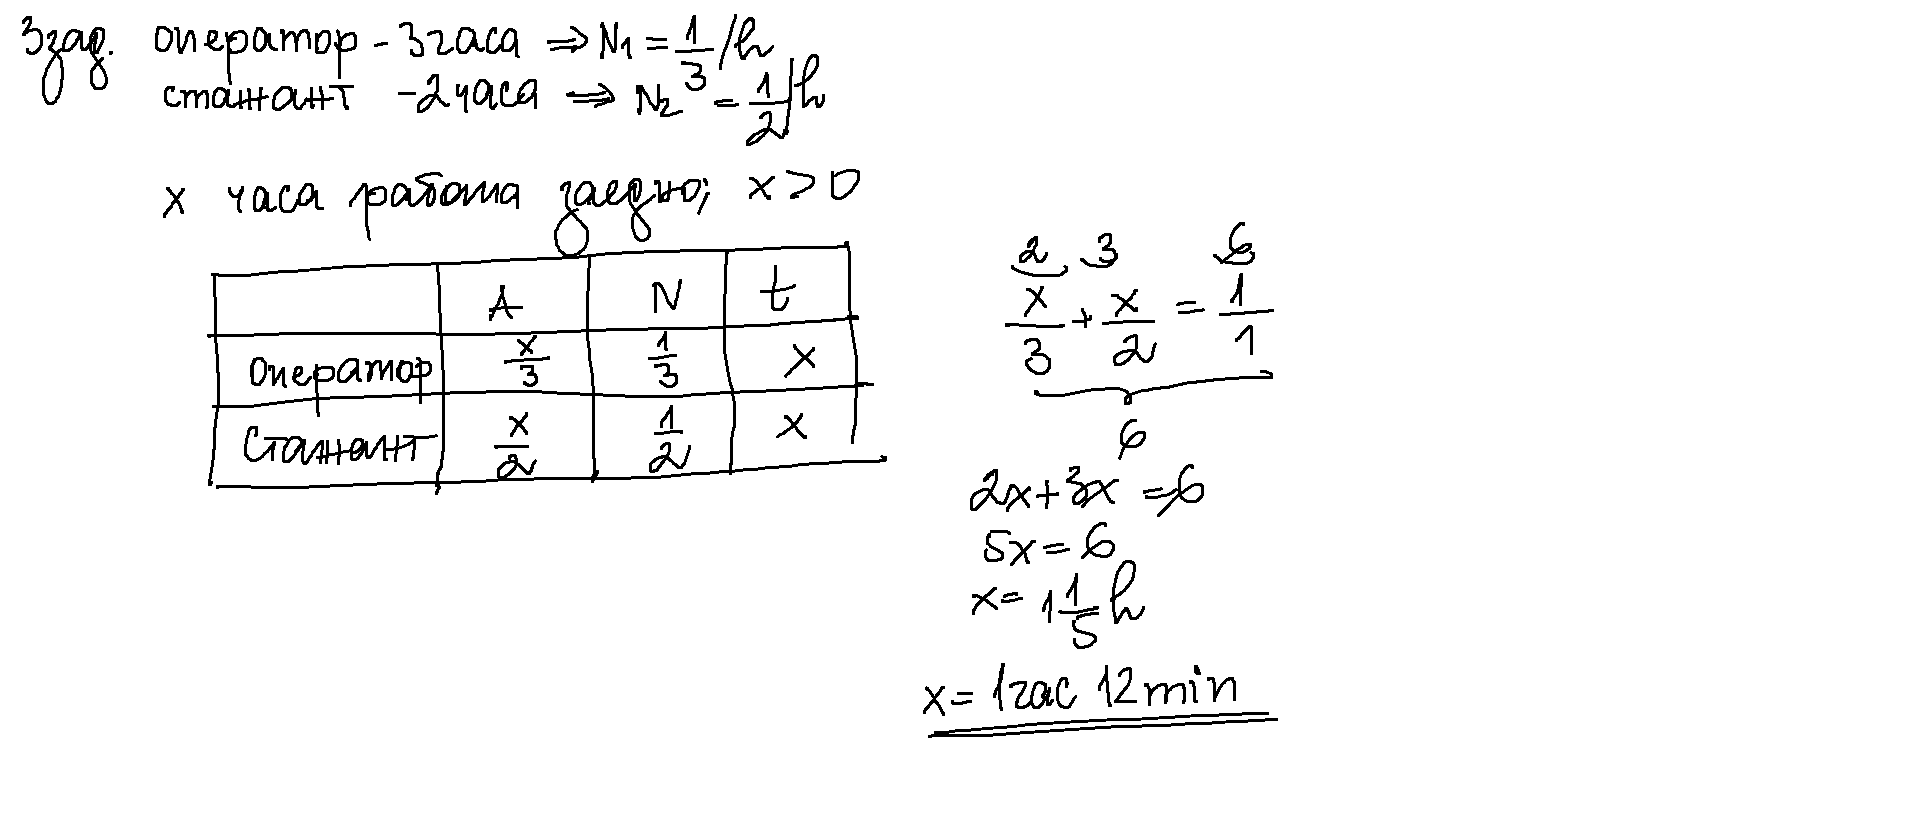 3зад. оператор - 3 часа ⇒ N₁ = 1/3 /h
стажант - 2 часа ⇒ N₂ = 1/2 /h
x часа работа заедно; x > 0
A N t
Оператор x/3 1/3 x
Стажант x/2 1/2 x
2 3 6
x/3 + x/2 = 1/1
6
2x + 3x = 6
5x = 6
x = 1 1/5 h
x = 1 час 12 min